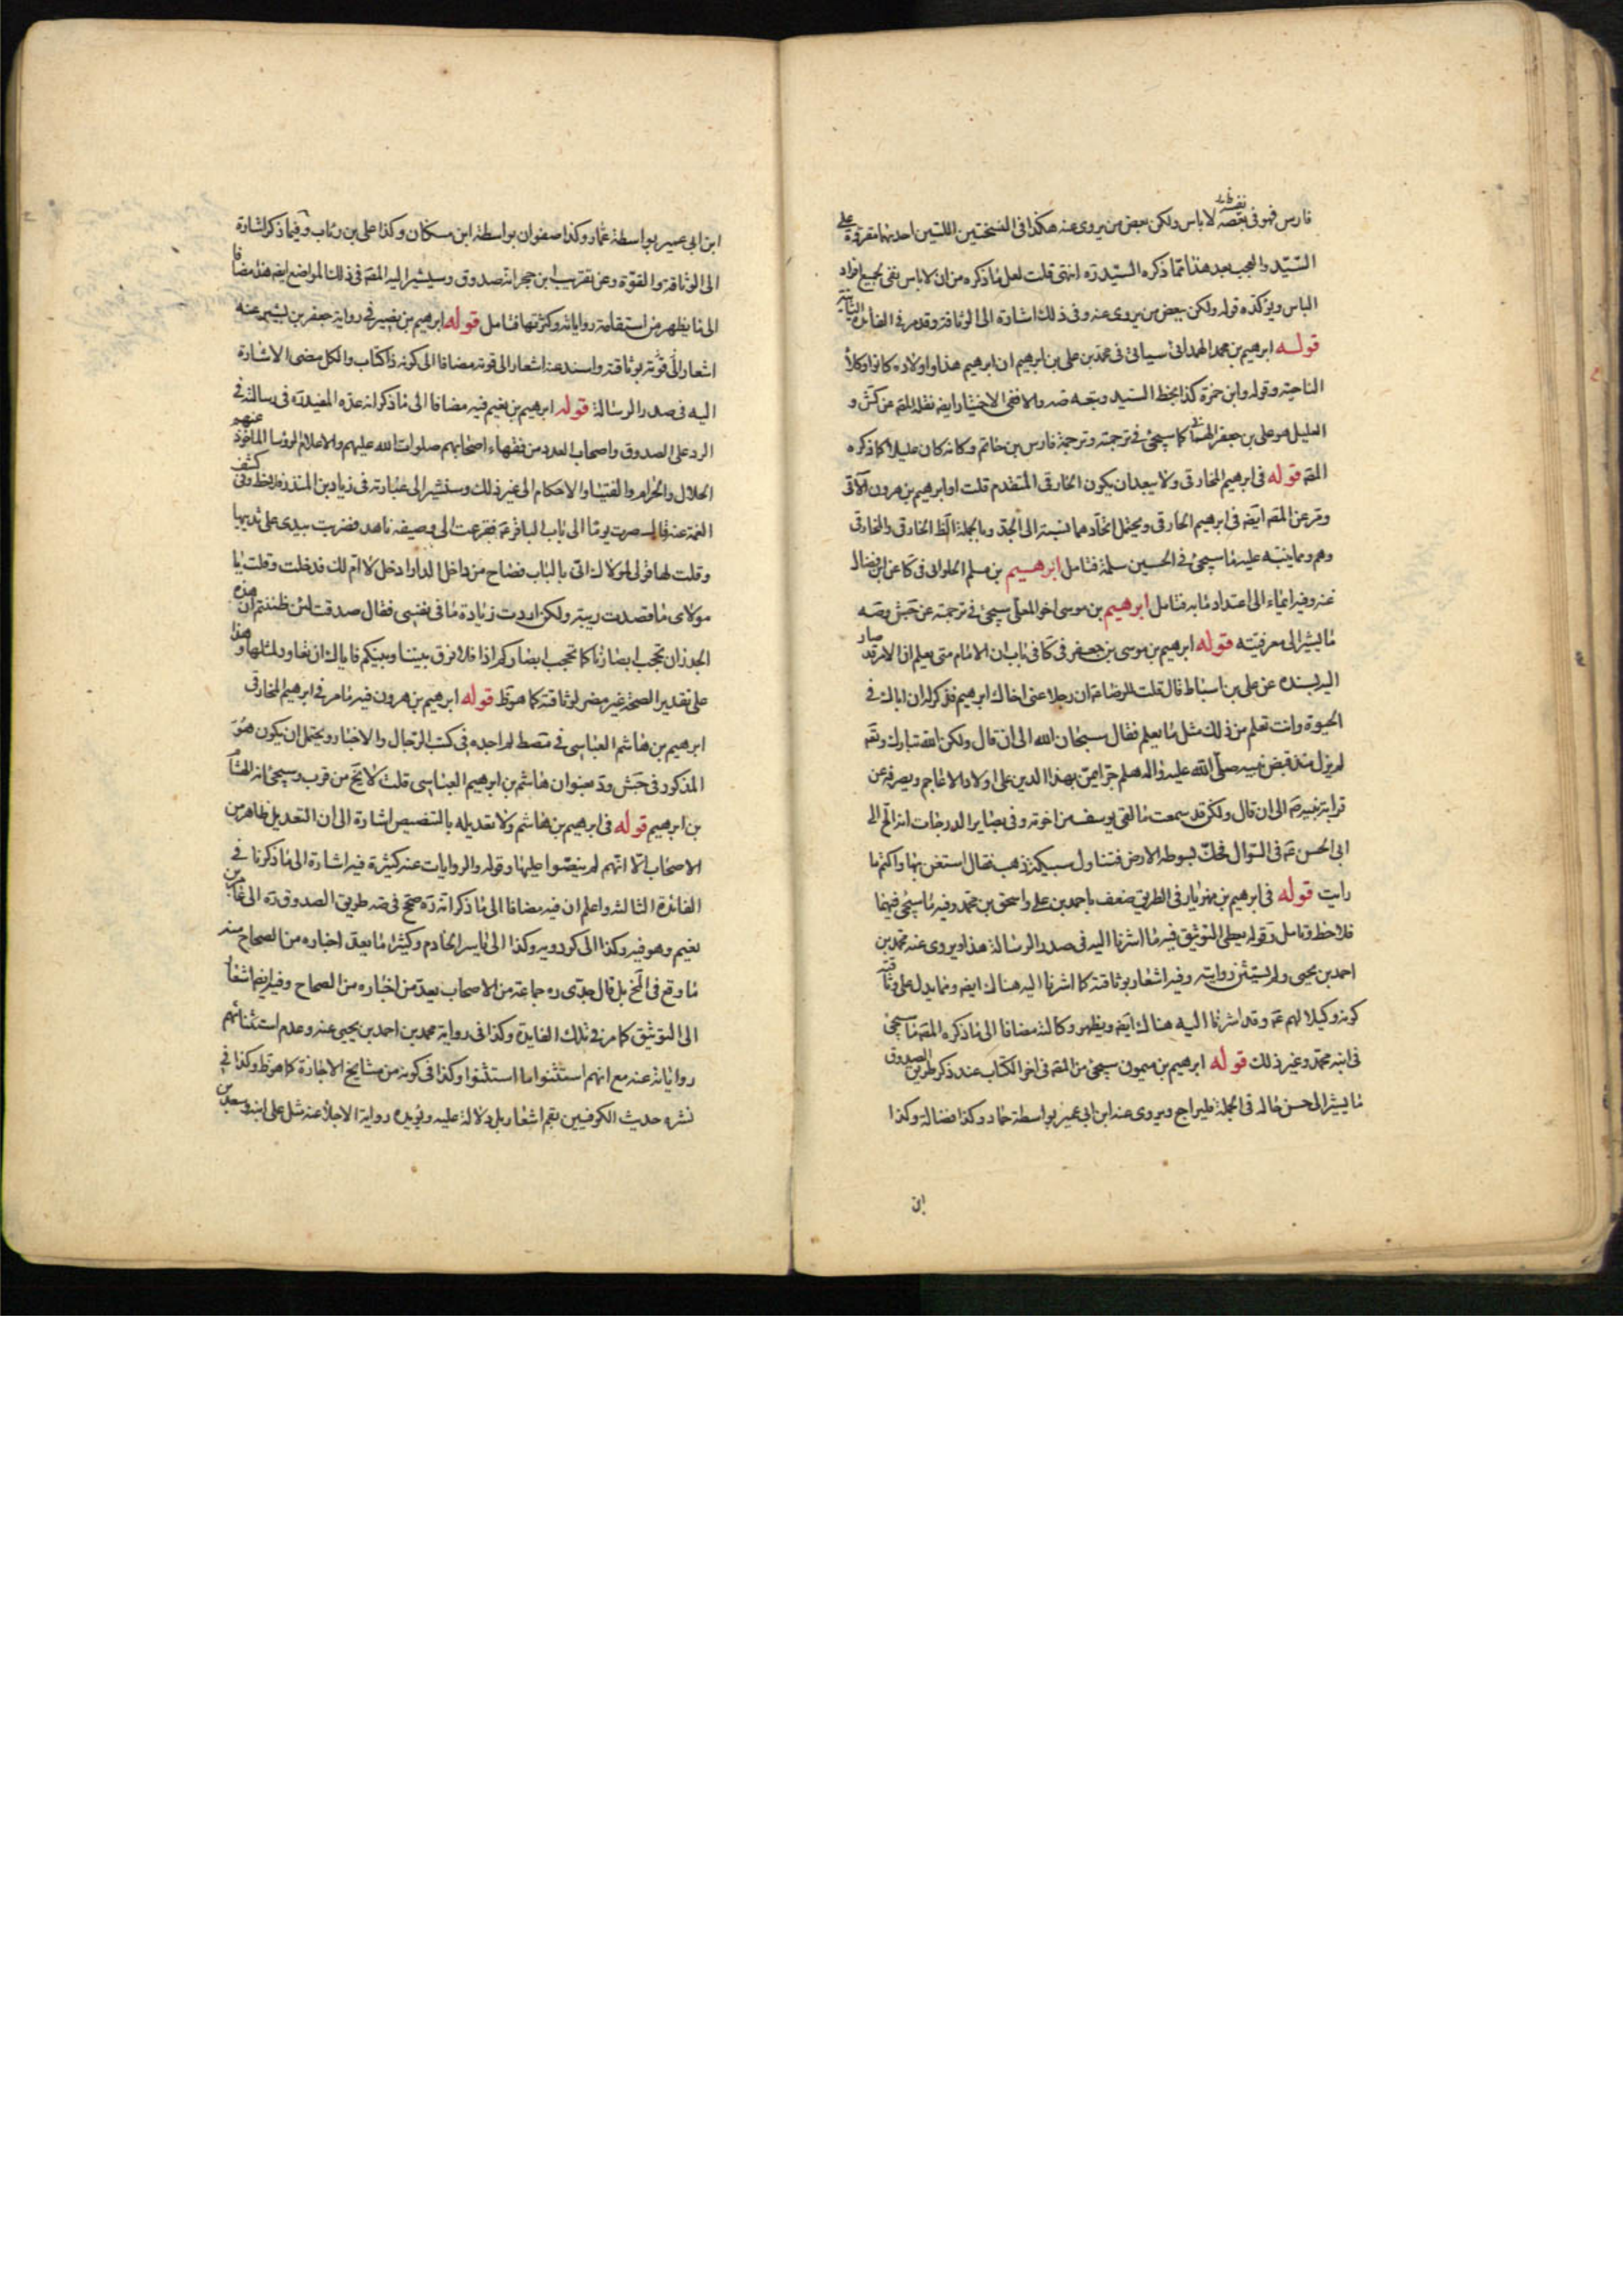 فارس فهو فى نفسه لاباس ولكن بعض من يروى عنه هكذا فى النسختين اللتين احدیهما مقروة على
السّيّد والعجب بعد هذا ممّا ذكره السّيّد ره انتهى قلت لعل ما ذكره من ان لاباس نفى لجميع افراد
الباس ويؤكّده قوله ولكن بعض من يروى عنه وفى ذلك اشارة الى الوثاقة وقد مر فى الفائدة الثانية
قوله ابرهيم بن محمد الهمدانى سياتى فى محمد بن على بن ابرهيم ان ابرهيم هذا واولاده كانوا وكلاء
الناحية وقوله وابن حمزة كذا بخط السّيد وتبعه والا ففى الاختيار ايضه نقله المقه عن كش و
العليل هو على بن جعفر كما سيجئ فى ترجمته وترجمة فارس بن حاتم وكانه كان عليلا كما ذكره
المقه قوله فى ابرهيم المخارقى ولا يبعد ان يكون الخارقى المتقدم قلت او ابرهيم بن هرون الاتى
ومر عن المقه ايضه فى ابرهيم الخارقى ويحتمل اتحادهما نسبة الى الجد وبالجملة الظ الخارقى والمخارقى
وهم ومما ينبّه عليه ما سيجئ فى الحسين سلمة فتامل ابرهيم بن مسلم الحلوانى فى كا عن ابن فضال
عنه وفيه ايماء الى اعتداد ما به فتامل ابرهيم بن موسى اخو المعلّى سيجئ فى ترجمته عن جش وصه
ما يشير الى معرفيته قوله ابرهيم بن موسى بن جعفر فى كا فى باب ان الامام متى يعلم ان الامر قد صار
اليه بسنده عن على بن اسباط قال قلت للرضا عه ان رجلا عنى اخاك ابرهيم فذكر له ان اباك فى
الحيوة وانت تعلم من ذلك مثل ما يعلم فقال سبحان الله الى ان قال ولكن الله تبارك وتعه
لم يزل منذ قبض نبيه صلّى الله عليه واله هلم جرّا يمن بهذا الدين على اولاد الاعاجم ويصرفه عن
قرابة نبيه صه الى ان قال ولكن قد سمعت ما لقى يوسف من اخوته وفى بصاير الدرجات انه الح الى
ابى الحسن عه فى السّوال فحكّ بسوطه الارض فتناول سبيكة ذهب فقال استغن بها واكتم ما
رايت قوله فى ابرهيم بن مهزيار فى الطريق ضعف باحمد بن على واسحق بن محمد وفيه ما سيجئ فيهما
فلاحظ وتامل وقوله يعطى التوثيق فيه ما اشرنا اليه فى صدر الرسالة هذا ويروى عنه محمد بن
احمد بن يحيى ولم يستثن روايته وفيه اشعار بوثاقته كما اشرنا اليه هناك ايضه ومما يدل على وثاقته
كونه وكيلا لهم عه وقد اشرنا اليه هناك ايضه ويظهر وكالته مضافا الى ما ذكره المقه ما سيجئ
فى ابنه محمد وغير ذلك قوله ابرهيم بن ميمون سيجئ من المقه فى اخر الكتاب عند ذكر طرق الصدوق
ما يشير الى حسن حاله فى الجملة فليراجع ويروى عنه ابن ابى عمير بواسطة حماد وكذا فضالة وكذا
ابن
ابن ابى عمير بواسطة عمار وكذا صفوان بواسطة ابن مسكان وكذا على بن رئاب وفيما ذكر اشارة
الى الوثاقة والقوّة وعن تقريب ابن حجر انه صدوق وسيشير اليه المقه فى ذلك المواضع ايضه هذا مضافا
الى ما يظهر من استقامة رواياته وكثرتها فتامل قوله ابرهيم بن نصير فى رواية جعفر بن بشير عنه
اشعار الى قوّته بوثاقته واسند عنه اشعار الى قوته مضافا الى كونه ذا كتاب والكل مضى الاشارة
اليه فى صدر الرسالة قوله ابرهيم بن نعيم فيه مضافا الى ما ذكر انه عدّه المفيد ره فى رسالته فى
الرد على الصدوق واصحاب العدد من فقهاء اصحابهم صلوات الله عليهم والاعلام الرؤسا الماخوذ عنهم
الحلال والحرام والفتيا والاحكام الى غير ذلك وسنشير الى عبارته فى زياد بن المنذر فلاحظ وفى كشف
الغمة عنه قال صرت يوما الى باب الباقر عه فقرعت الى وصيفه ناهد فضربت بيدى على ثديها
وقلت لها قولى لمولاك انى بالباب فصاح من داخل الدار ادخل لا ام لك فدخلت وقلت يا
مولاى ما قصدت ريبة ولكن اردت زيادة ما فى نفسى فقال صدقت لئن ظننتم ان هذه
الجدران تحجب ابصارنا كما تحجب ابصاركم اذا فلا فرق بيننا وبينكم فاياك ان تعاود لمثلها وهذا
على تقدير الصحة غير مضر لوثاقته كما هو ظ قوله ابرهيم بن هرون فيه ما مر فى ابرهيم المخارقى
ابرهيم بن هاشم العباسى فى مصط لم اجده فى كتب الرجال والاخبار ويحتمل ان يكون هو
المذكور فى جش ود بعنوان هاشم بن ابرهيم العباسى قلت لا يخ من قرب وسيجئ انه هشام
بن ابرهيم قوله فى ابرهيم بن هاشم ولا تعديله بالتنصيص اشارة الى ان التعديل ظاهر من
الاصحاب الا انهم لم ينصّوا عليها وقوله والروايات عنه كثيرة فيه اشارة الى ما ذكرنا فى
الفائدة الثالثه واعلم ان فيه مضافا الى ما ذكر انه ره صحح فى صه طريق الصدوق ره الى عامر بن
نعيم وهو فيه وكذا الى كردويه وكذا الى ياسر الخادم وكثيرا ما يعد اخباره من الصحاح منه
ما وقع فى الحج بل قال جدّى ره جماعة من الاصحاب يعد من اخباره من الصحاح وفيه ايضا اشعار
الى التوثيق كما مر فى تلك الفايدة وكذا فى رواية محمد بن احمد بن يحيى عنه وعدم استثنائهم
رواياته عنه مع انهم استثنوا ما استثنوا وكذا فى كونه من مشايخ الاجازة كما هو ظ وكذا فى
نشره حديث الكوفيين بقم اشعار بل دلالة عليه ويؤيده رواية الاجلاء عنه مثل على ابنه وسعد بن